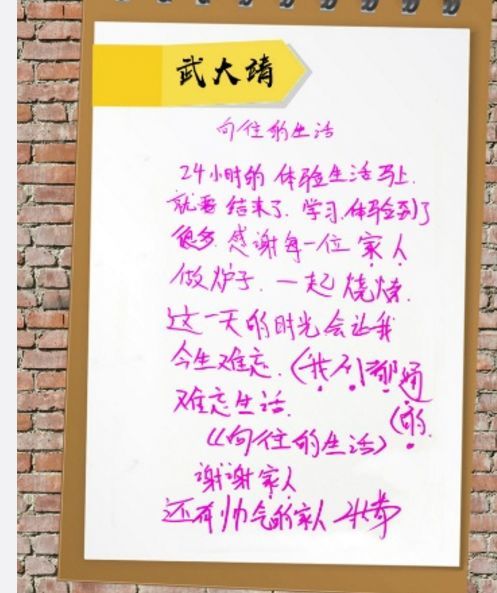 武大靖
向往的生活
24小时的体验生活马上
就要结束了.学习.体验到了
很多.感谢每一位家人
做炉子.一起烧烤.
这一天的时光会让我
今生难忘.(我们都通
难忘生活. (的.
《向往的生活》
谢谢家人
还有帅气的家人